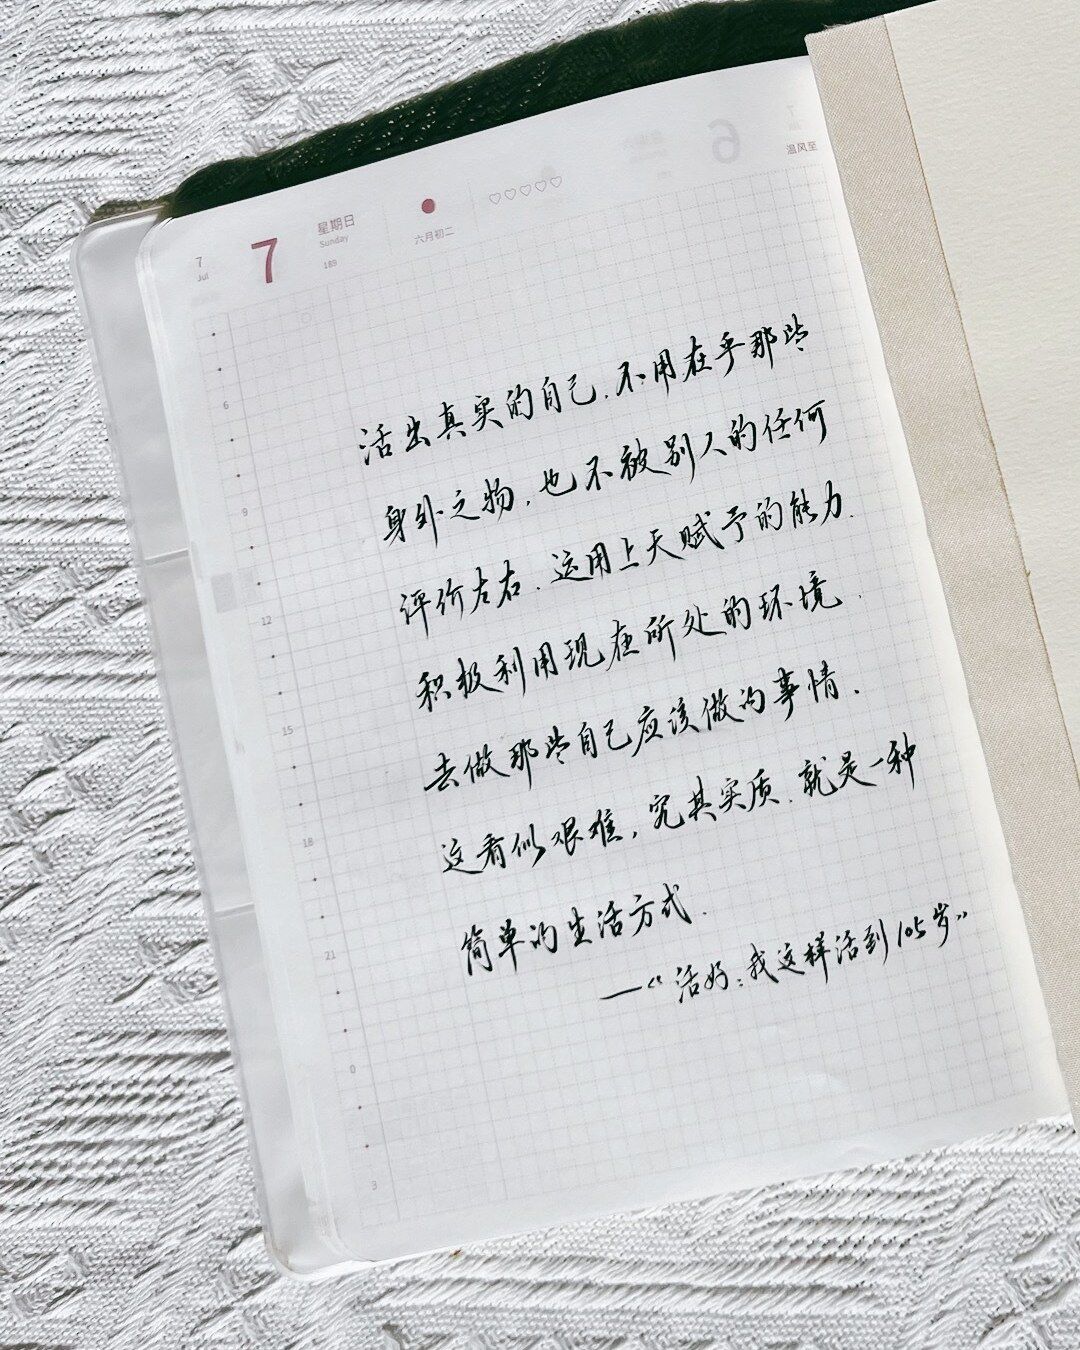 7
Jul
7
星期日
Sunday
189
六月初二
♡♡♡♡♡
6
7
温风至
活出真实的自己.不用在乎那些
身外之物,也不被别人的任何
评价左右.运用上天赋予的能力.
积极利用现在所处的环境.
去做那些自己应该做的事情.
这看似艰难,究其实质.就是一种
简单的生活方式.
—《活好:我这样活到105岁》
6
9
12
15
18
21
0
3